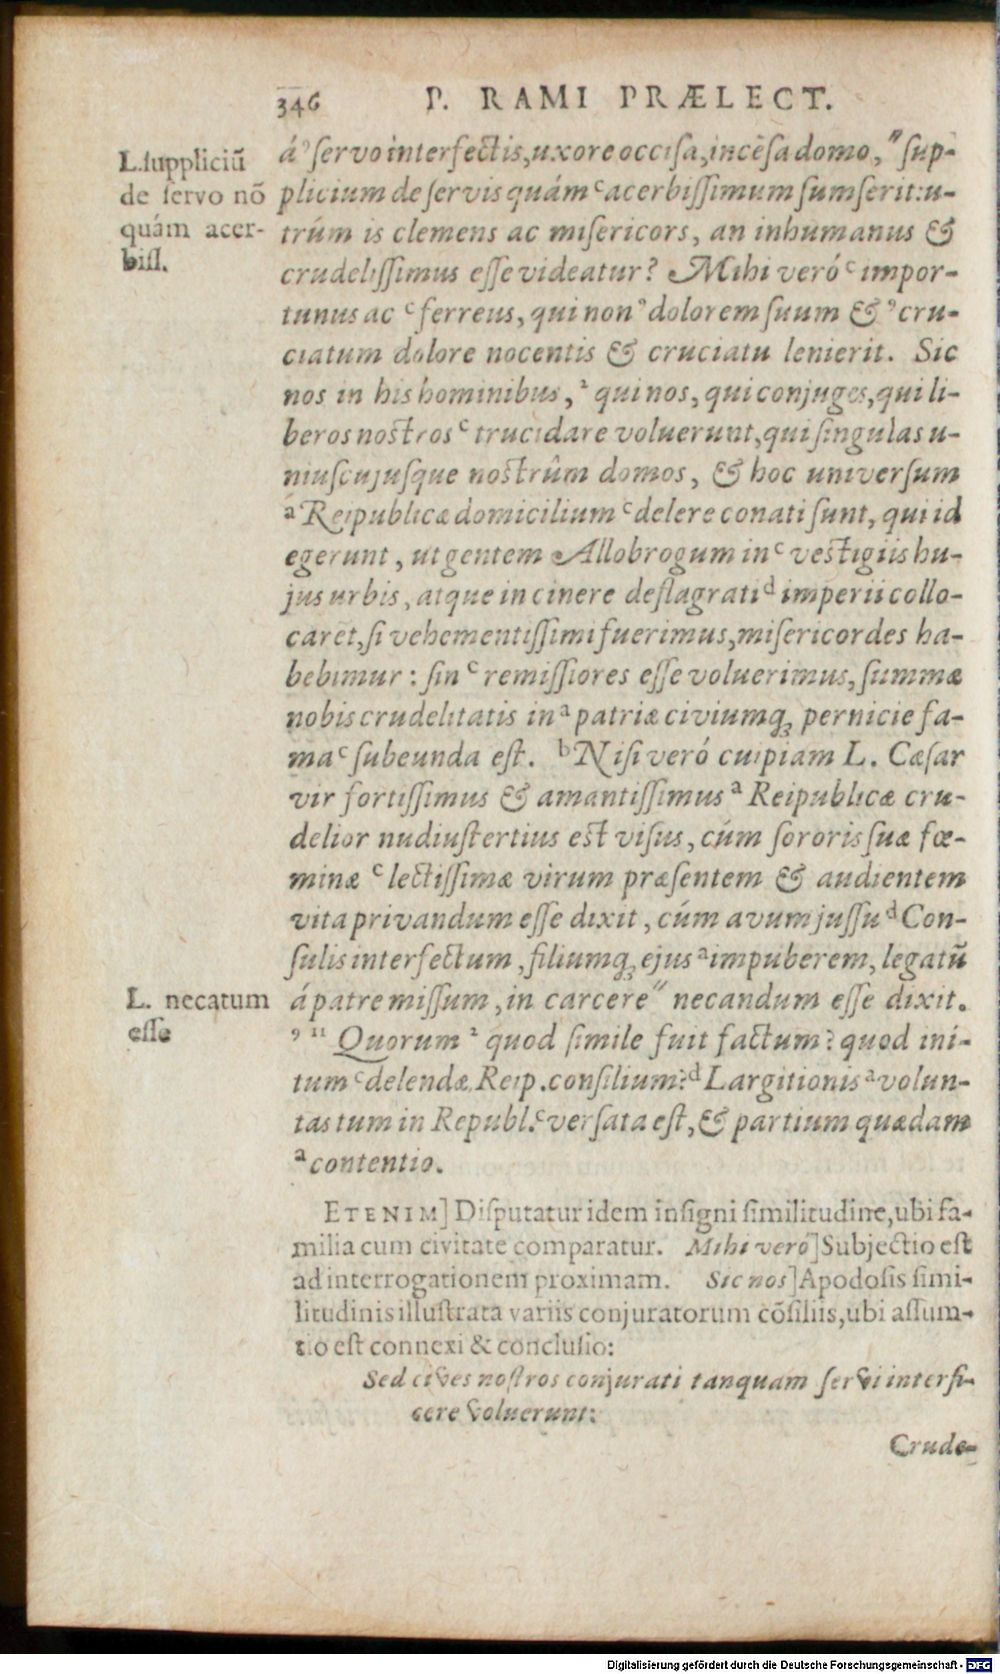 346 P. RAMI PRÆLECT.
L. suppliciū
de servo nō
quám acer-
biss.
á ⁹ servo interfectis, uxore occisa, incēsa domo, " sup-
plicium de servis quám ᶜ acerbissimum sumserit: u-
trúm is clemens ac misericors, an inhumanus &
crudelissimus esse videatur? Mihi veró ᶜ impor-
tunus ac ᶜ ferreus, qui non ⁹ dolorem suum & ⁹ cru-
ciatum dolore nocentis & cruciatu lenierit. Sic
nos in his hominibus, ² qui nos, qui conjuges, qui li-
beros nostros ᶜ trucidare voluerunt, qui singulas u-
niuscujusque nostrûm domos, & hoc universum
ᵃ Reipublicæ domicilium ᶜ delere conati sunt, qui id
egerunt, ut gentem Allobrogum in ᶜ vestigiis hu-
jus urbis, atque in cinere deflagrati ᵈ imperii collo-
caret, si vehementissimi fuerimus, misericordes ha-
bebimur: sin ᶜ remissiores esse voluerimus, summæ
nobis crudelitatis in ᵃ patriæ civiumq́ꝫ pernicie fa-
ma ᶜ subeunda est. ᵇ Nisi veró cuipiam L. Cæsar
vir fortissimus & amantissimus ᵃ Reipublicæ cru-
delior nudiustertius est visus, cúm sororis suæ fœ-
minæ ᶜ lectissimæ virum præsentem & audientem
vita privandum esse dixit, cúm avum jussu ᵈ Con-
sulis interfectum, filiumq́ꝫ ejus ᵃ impuberem, legatū
L. necatum
esse
á patre missum, in carcere " necandum esse dixit.
⁹ ¹¹ Quorum ² quod simile fuit factum? quod ini-
tum ᶜ delendæ Reip. consilium? ᵈ Largitionis ᵃ volun-
tas tum in Republ. ᶜ versata est, & partium quædam
ᵃ contentio.
ETENIM] Disputatur idem insigni similitudine, ubi fa-
milia cum civitate comparatur. Mihi vero] Subjectio est
ad interrogationem proximam. Sic nos] Apodosis simi-
litudinis illustrata variis conjuratorum cōsiliis, ubi assum-
tio est connexi & conclusio:
Sed cives nostros conjurati tanquam servi interfi-
cere voluerunt:
Crude-
Digitalisierung gefördert durch die Deutsche Forschungsgemeinschaft - DFG